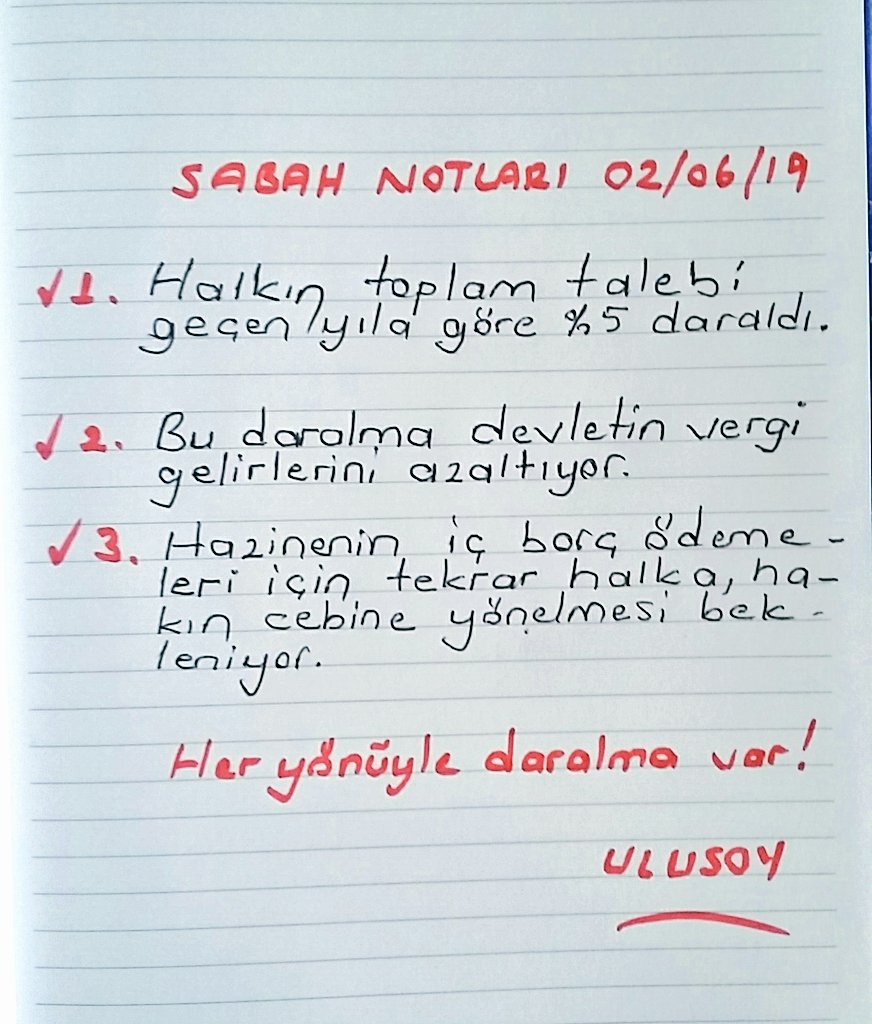 SABAH NOTLARI 02/06/19
✓1. Halkın toplam talebi
geçen yıla göre %5 daraldı.
✓2. Bu daralma devletin vergi
gelirlerini azaltıyor.
✓3. Hazinenin iç borç ödeme-
leri için tekrar halka, ha-
kın cebine yönelmesi bek-
leniyor.
Her yönüyle daralma var!
ULUSOY